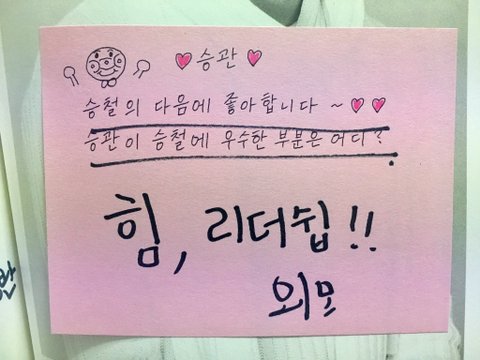 ♥승관♥
승철의 다음에 좋아합니다 ~♥♥
승관이 승철에 우수한 부분은 어디?
힘, 리더쉽!!
외모